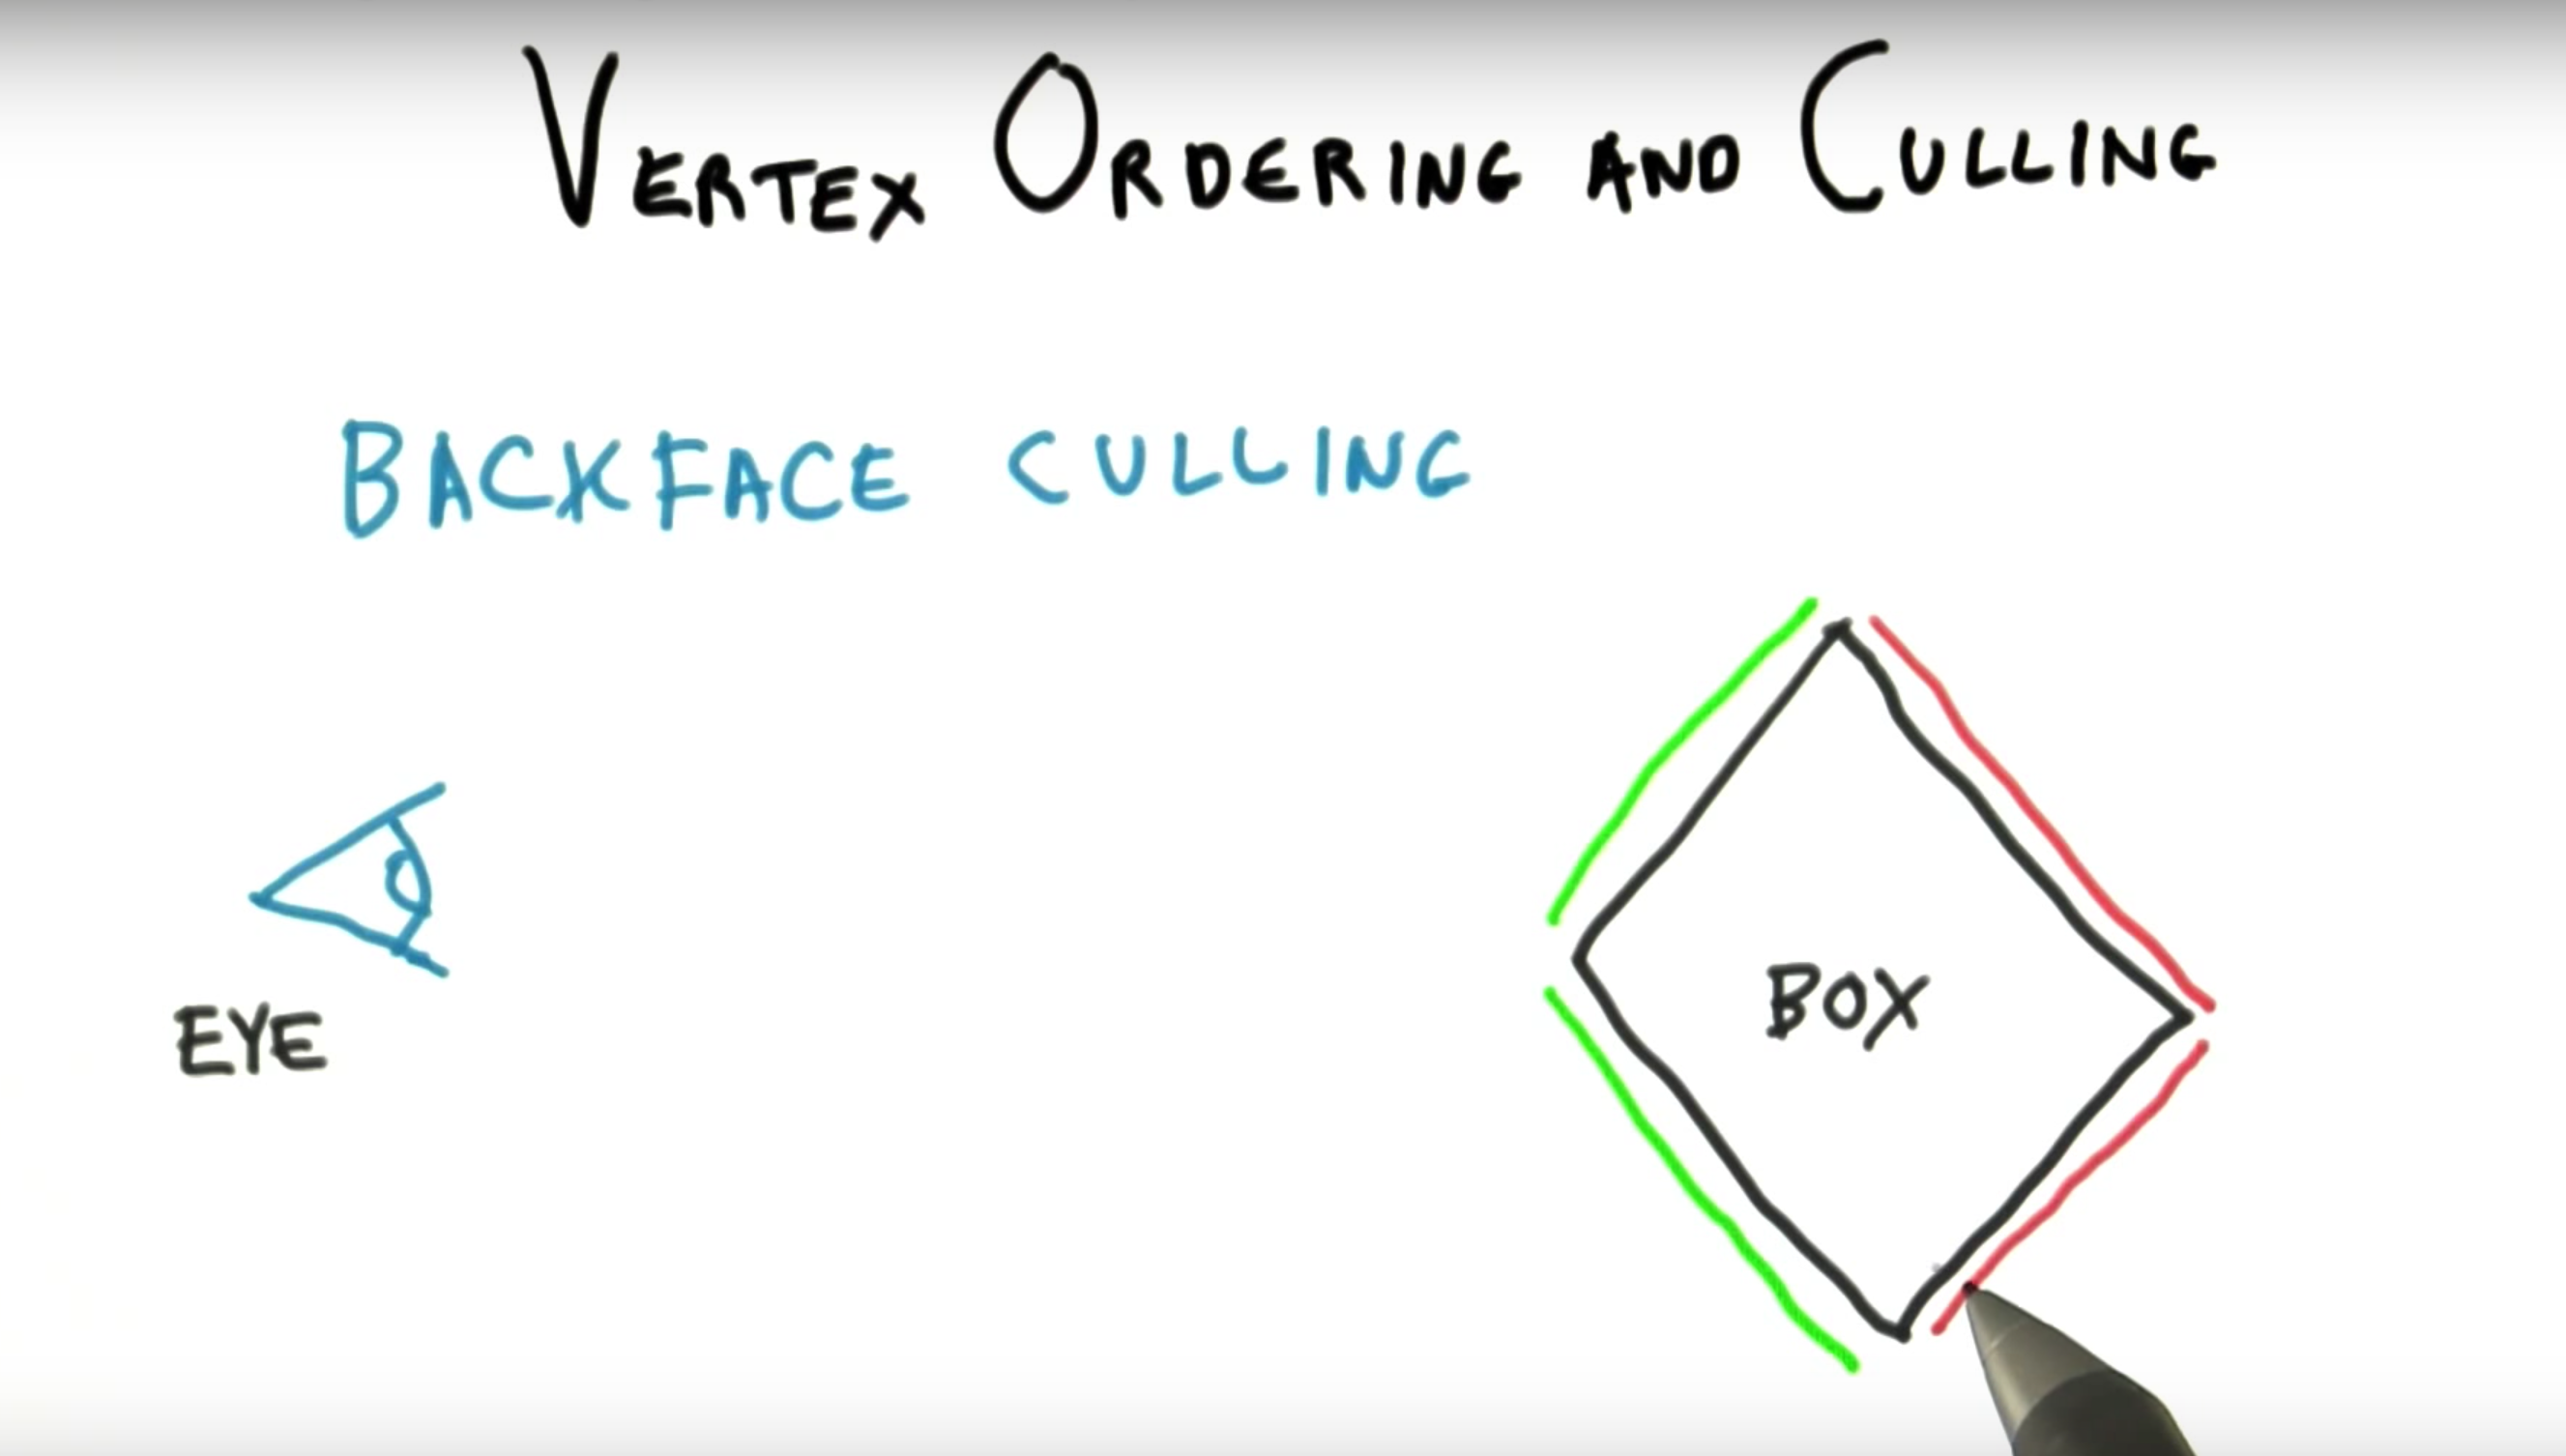 VERTEX ORDERING AND CULLING
BACKFACE CULLING
EYE
BOX